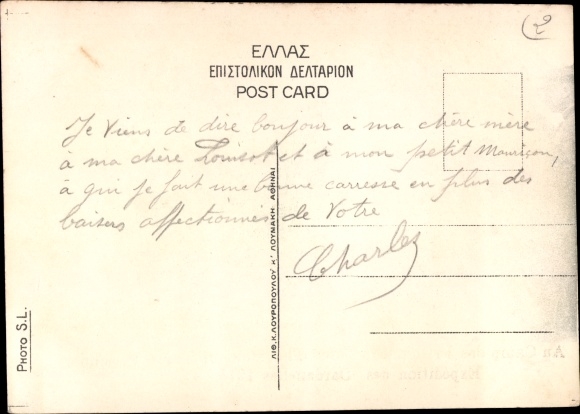 2
ΕΛΛΑΣ
ΕΠΙΣΤΟΛΙΚΟΝ ΔΕΛΤΑΡΙΟΝ
POST CARD
Je viens de dire bonjour à ma chère mère
à ma chère Louisot et à mon petit Mauriçou,
à qui je fait une bonne carresse en plus des
baisers affectionnés de Votre
Charles
ΛΙΘ. Κ. ΛΟΥΡΟΠΟΥΛΟΥ Κ' ΛΟΥΜΑΚΗ ΑΘΗΝΑΙ
PHOTO S.L.